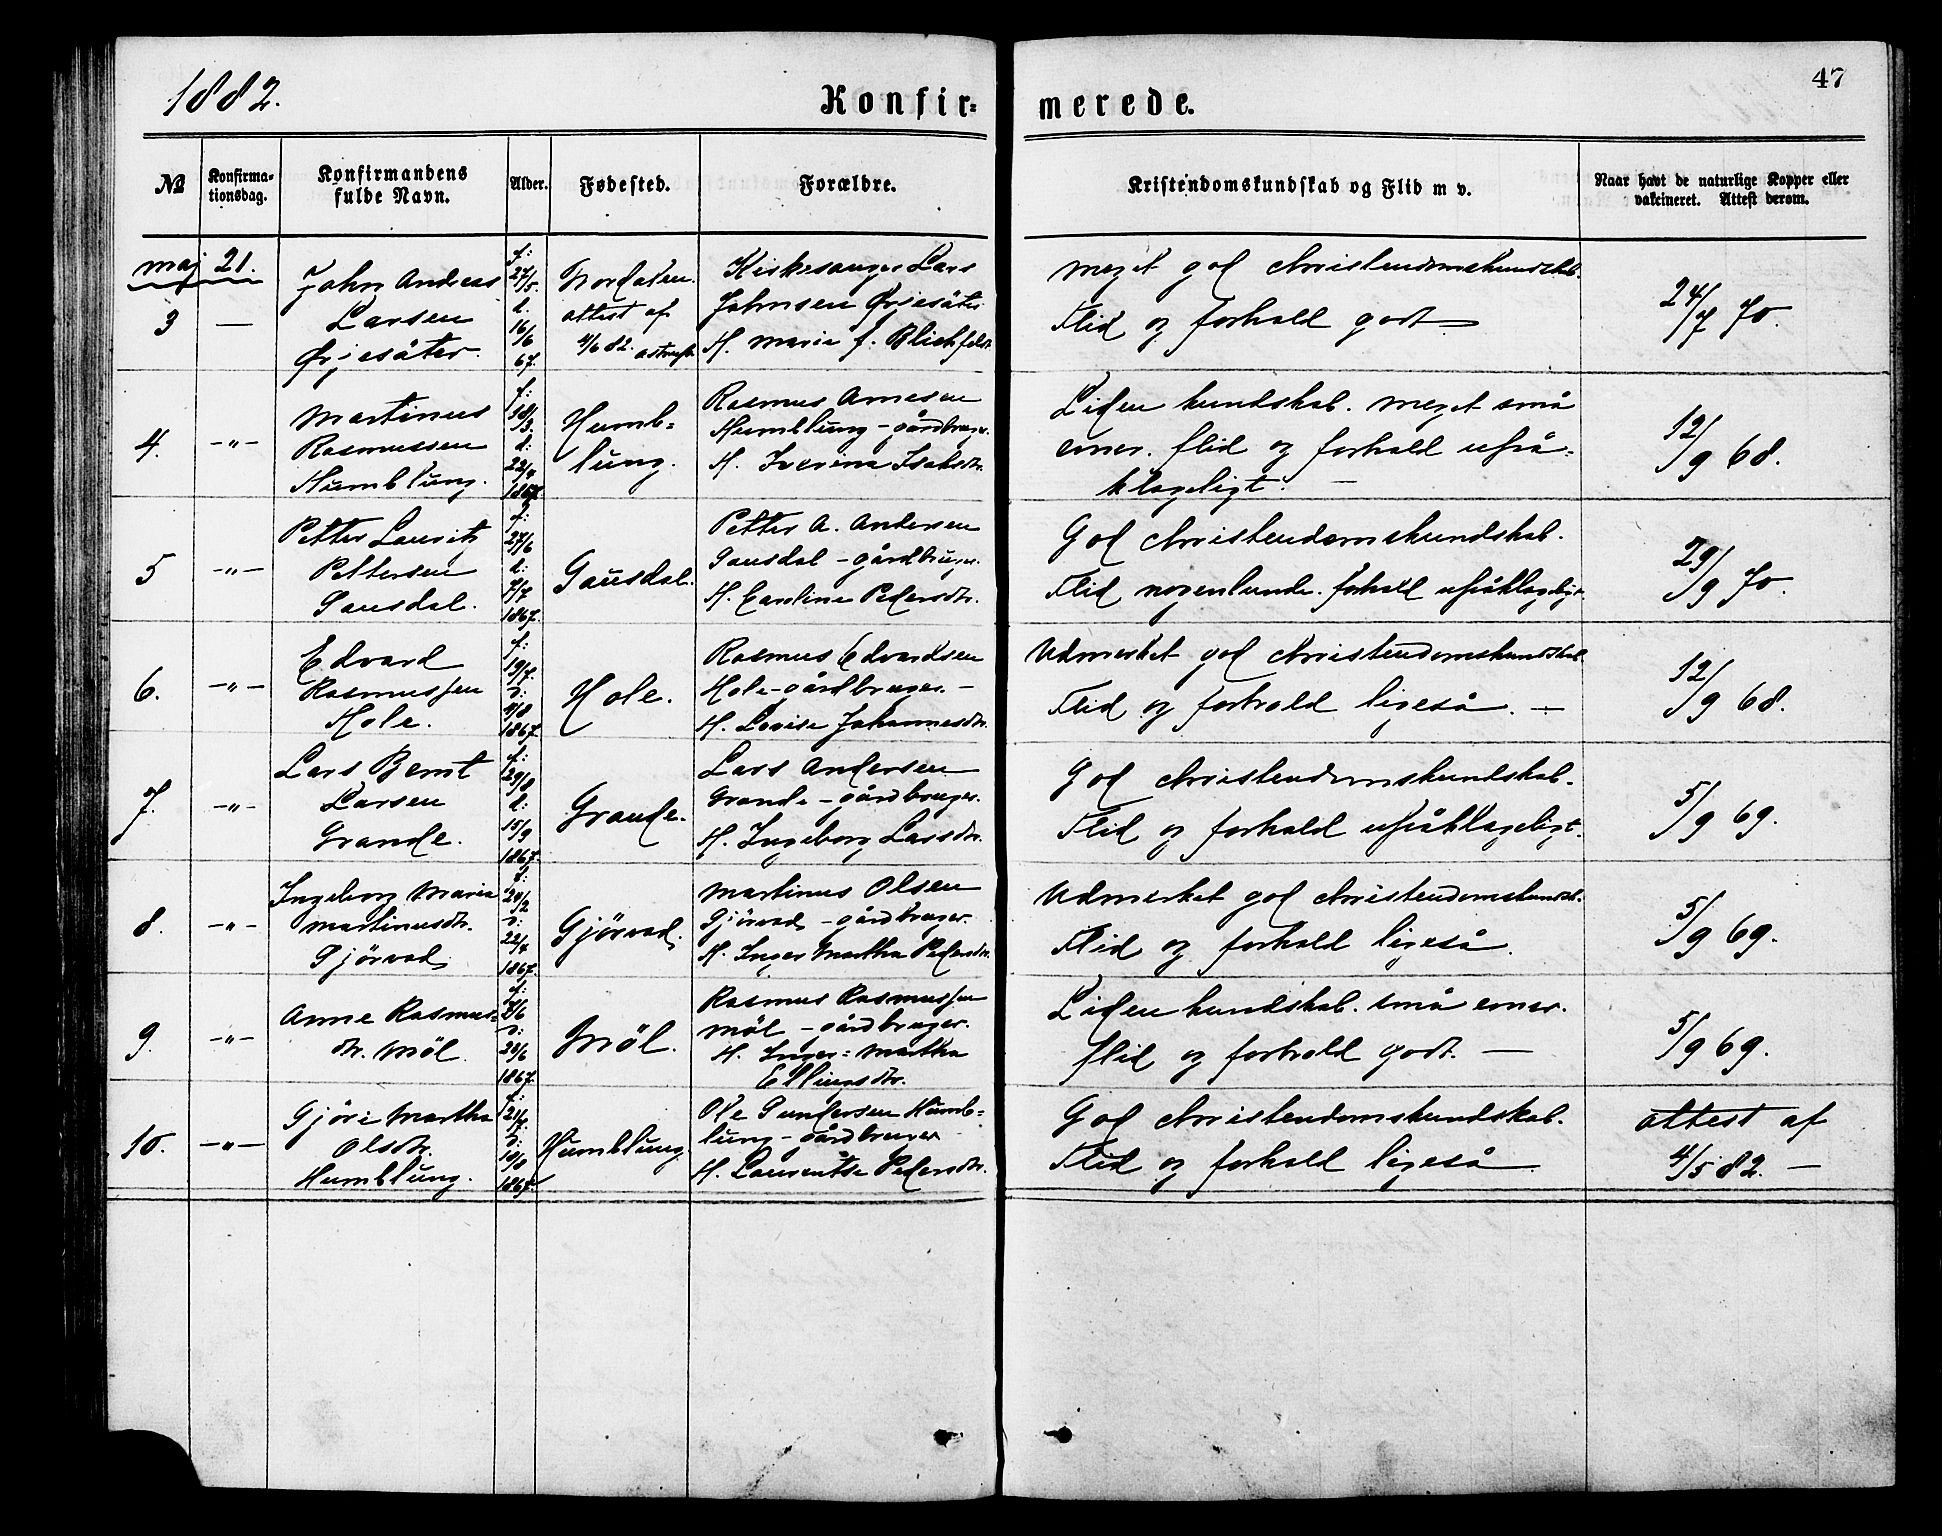 1882.
Konfir-
merede.
47
No
Konfirma-
tionsdag.
Konfirmandens
fulde Navn.
Alder.
Fødested.
Forældre.
Kristendomskundskab og Flid m v.
Naar havt de naturlige Kopper eller
vakcineret. Attest derom.
maj 21.
3 —
John Andreas
Larsen
Ørjesäter.
f:
27/5.
d.
16/6
67.
attest af
4/6 82.
Kirkesanger Lars
Johnsen Ørjesäter.
H. Marie f. Blichfeldt
Meget god christendomskundskb.
Flid og forhold godt
24/7 70.
4. -"-
Martinus
Rasmussen
Humblung.
f:
18/3.
d:
22/4
1867.
Humb-
lung.
Rasmus Arnesen
Humblung - gårdbruger.
H. Iverina Isaksdtr.
Liden kundskab. meget små
evner. flid og forhold upå-
klageligt. —
12/9 68.
5 -"-
Petter Laurits
Pettersen
Gausdal.
f:
27/6
d:
7/7
1867.
Gausdal.
Petter A. Andersen
Gausdal - gårdbruger.
H. Caroline Pedersdtr.
God christendomskundskab.
Flid nogenlunde. forhold upåklageligt.
29/9 70.
6. -"-
Edvard
Rasmussen
Hole.
f:
19/7.
d:
4/8
1867.
Hole.
Rasmus Edvardsen
Hole - gårdbruger. -
H. Lovise Johannesdtr.
Udmerket god christendomskundskab
Flid og forhold ligeså. —
12/9 68.
7. -"-
Lars Bernt
Larsen
Grande.
f:
29/8
d:
15/9
1867.
Grande.
Lars Andersen
Grande - gårdbruger.
H. Ingeborg Larsdtr.
God christendomskundskab.
Flid og forhold upåklageligt.
5/9 69.
8. -"-
Ingeborg Maria
Martinusdtr.
Gjörvad
f:
24/2
d:
22/4
1867.
Gjörvad.
Martinus Olsen
Gjörvad - gårdbruger.
H. Inger Martha Pedersdtr.
Udmerket god christendomskundsk.
Flid og forhold ligeså.
5/9 69.
9. -"-
Anne Rasmus-
dtr. Möl.
f:
2/6
d:
29/6
1867.
Möl.
Rasmus Rasmussen
Möl - gårdbruger.
H. Inger-Martha
Ellingsdtr.
Liden kundskab. små evner.
flid og forhold godt. —
5/9 69.
10. -"-
Gjöri Martha
Olsdtr.
Humblung.
f:
21/7.
d:
10/8
1867.
Humblung
Ole Gundersen Humb-
lung - gårdbruger
H. Laurentse Pedersdtr.
God christendomskundskab.
Flid og forhold ligeså
attest af
4/5 82. —